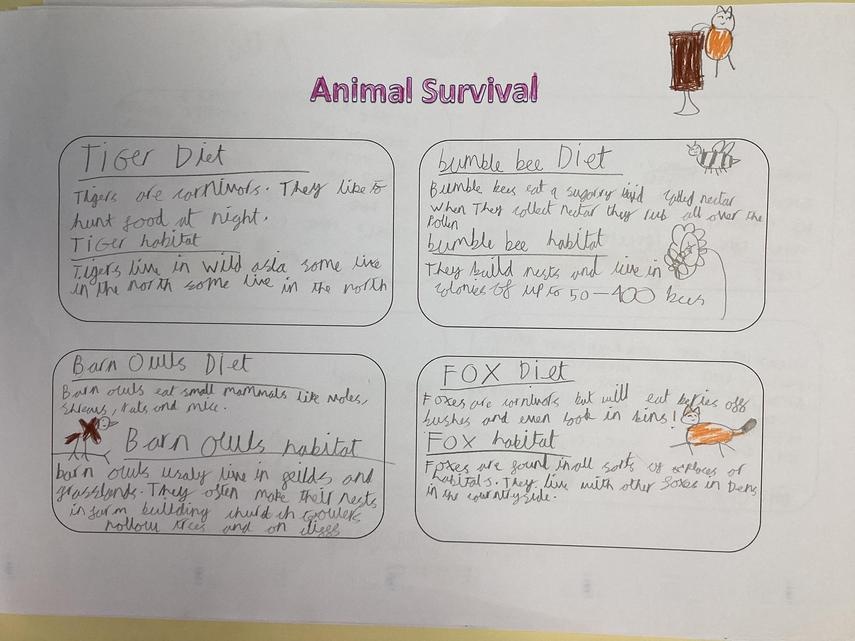 Animal Survival
Tiger Diet
Tigers are cornivors. They like to
hunt food at night.
Tiger habitat
Tigers live in wild asia some live
in the north some live in the north
bumble bee Diet
Bumble bees eat a sugary called nectar
When They collect nectar they rub all over the
Pollen
bumble bee habitat
They build nests and live in
colonies of up to 50-400 bees
Barn Owls Diet
Barn owls eat small mammals like voles,
and mice.
Barn owls habitat
barn owls usaly live in and
grasslands. They often make their nests
in farm building church
hollow trees and on
FOX Diet
Foxes are cornivors but will eat off
bushes and even look in bins!
FOX habitat
Foxes are found in all sorts of places or
habitats. They live with other foxes in Dens
in the countryside.